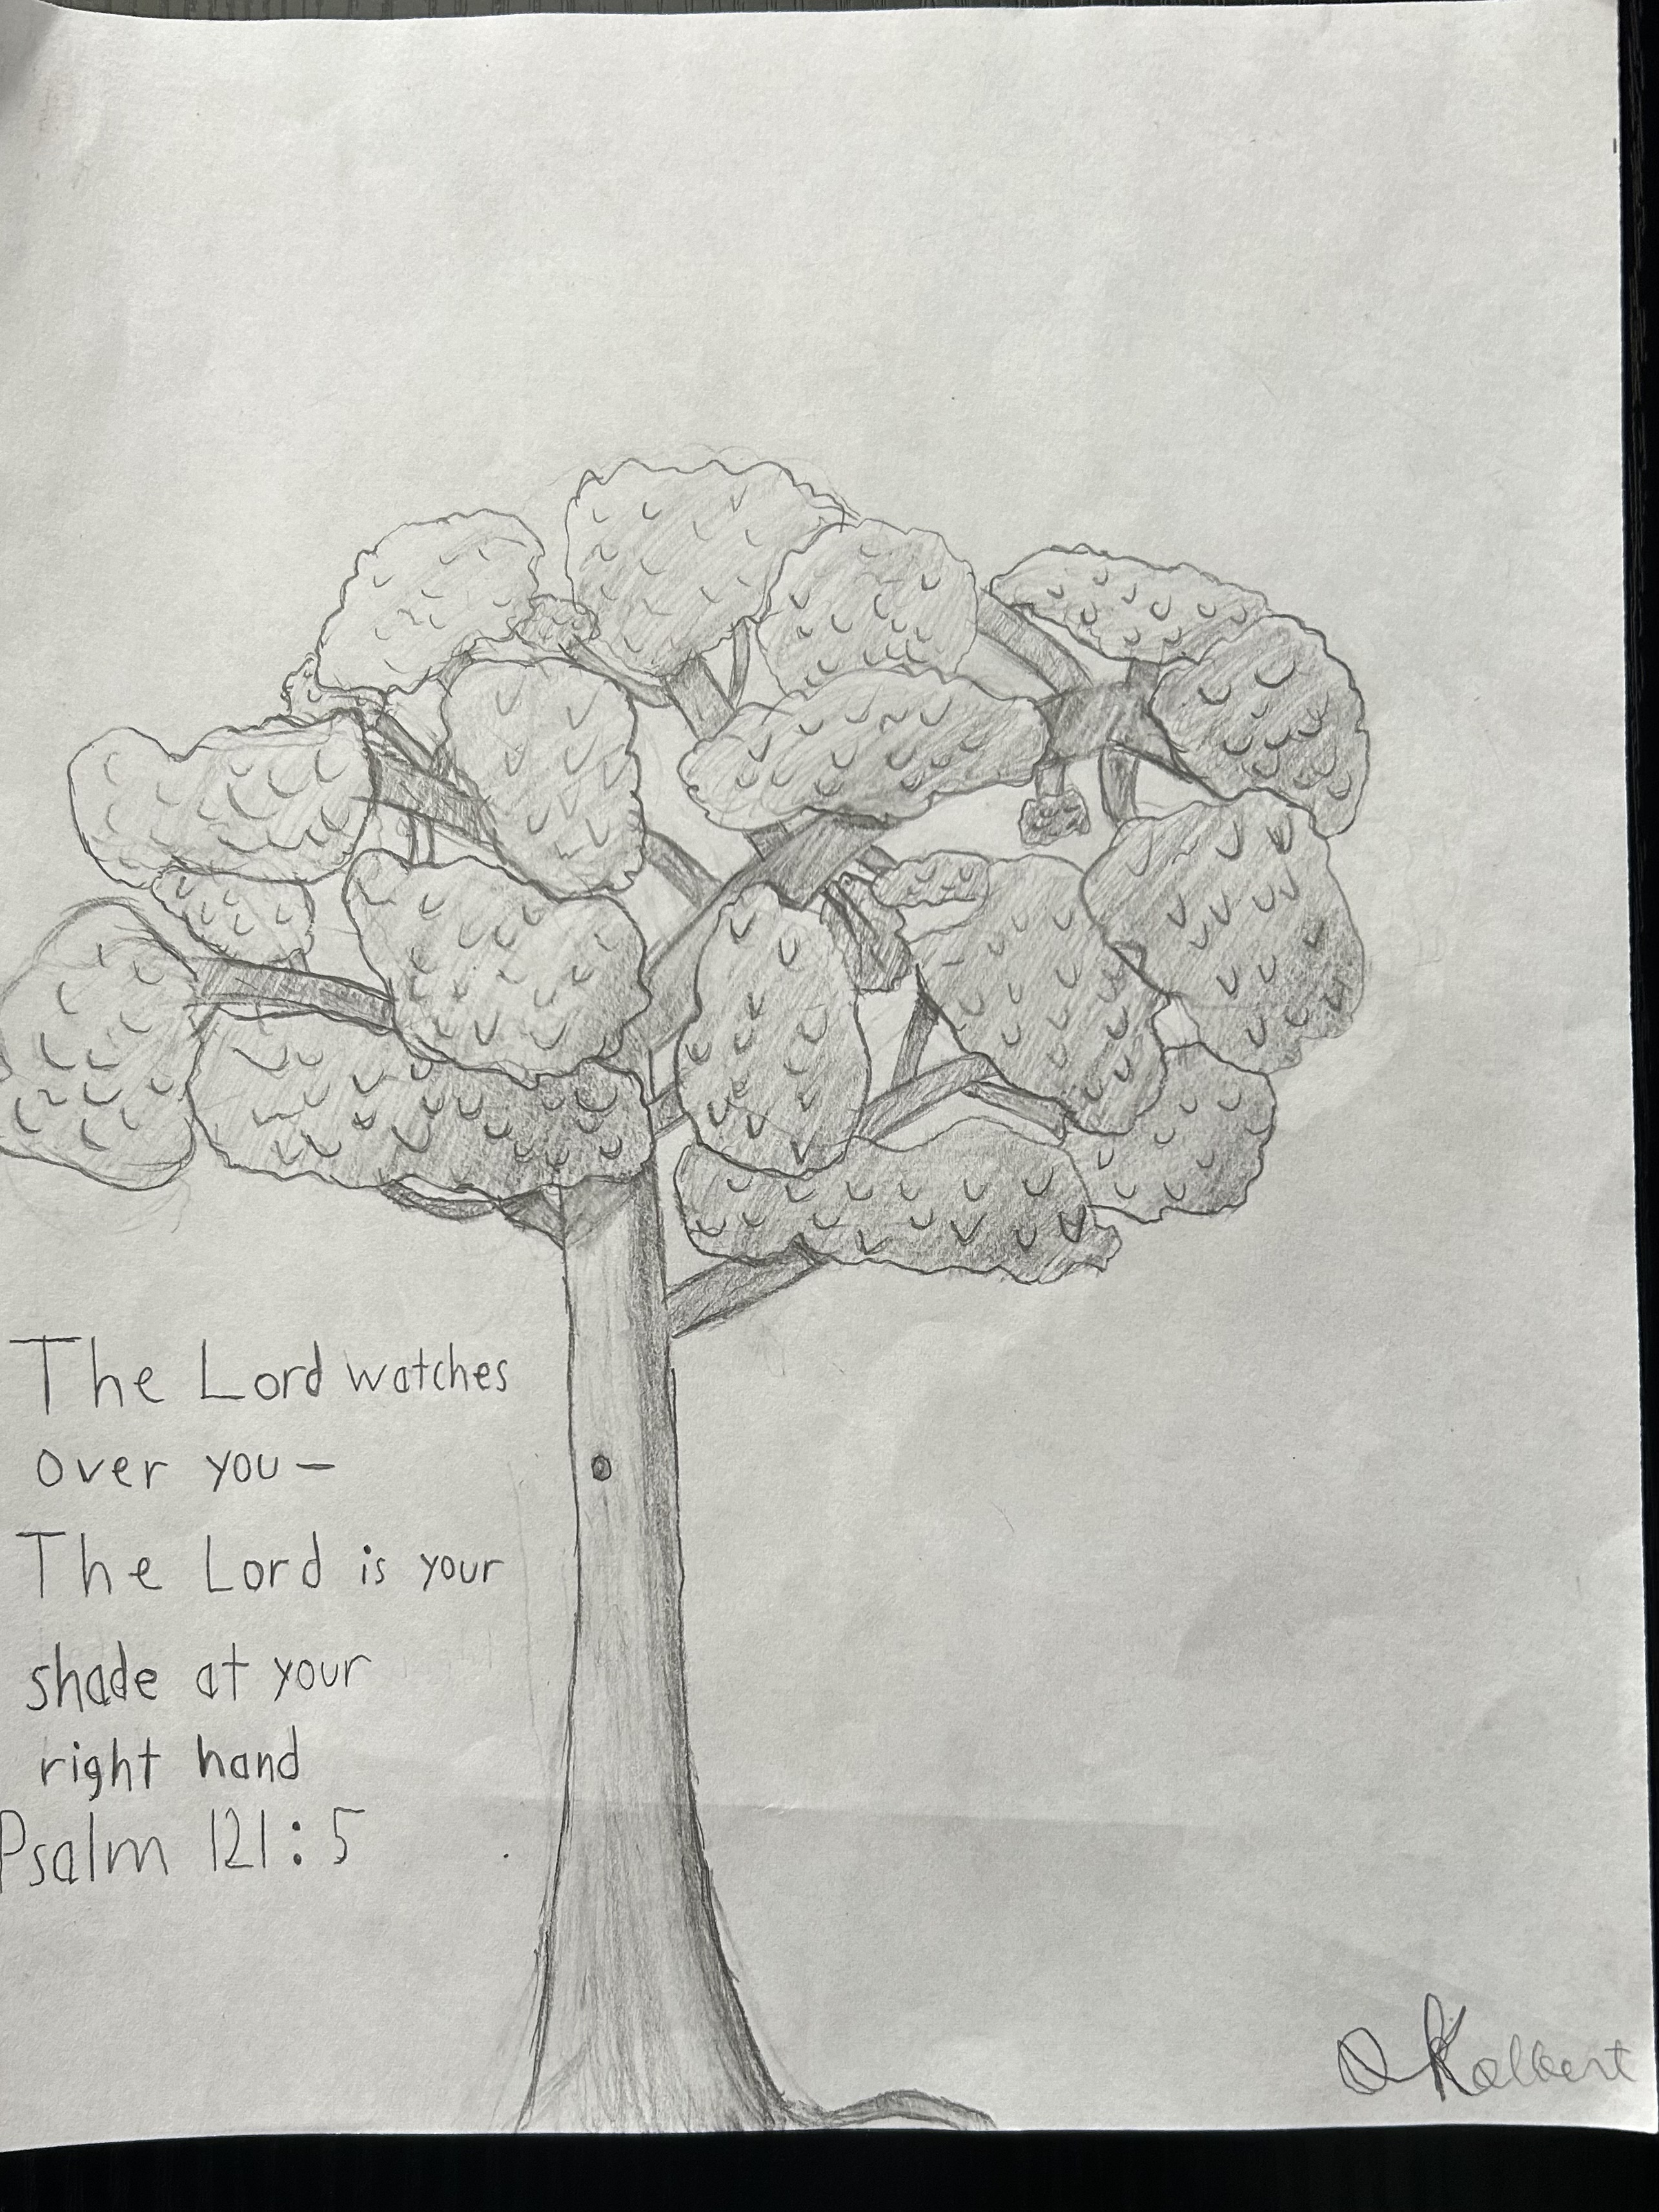 The Lord watches
over you—
The Lord is your
shade at your
right hand
Psalm 121:5